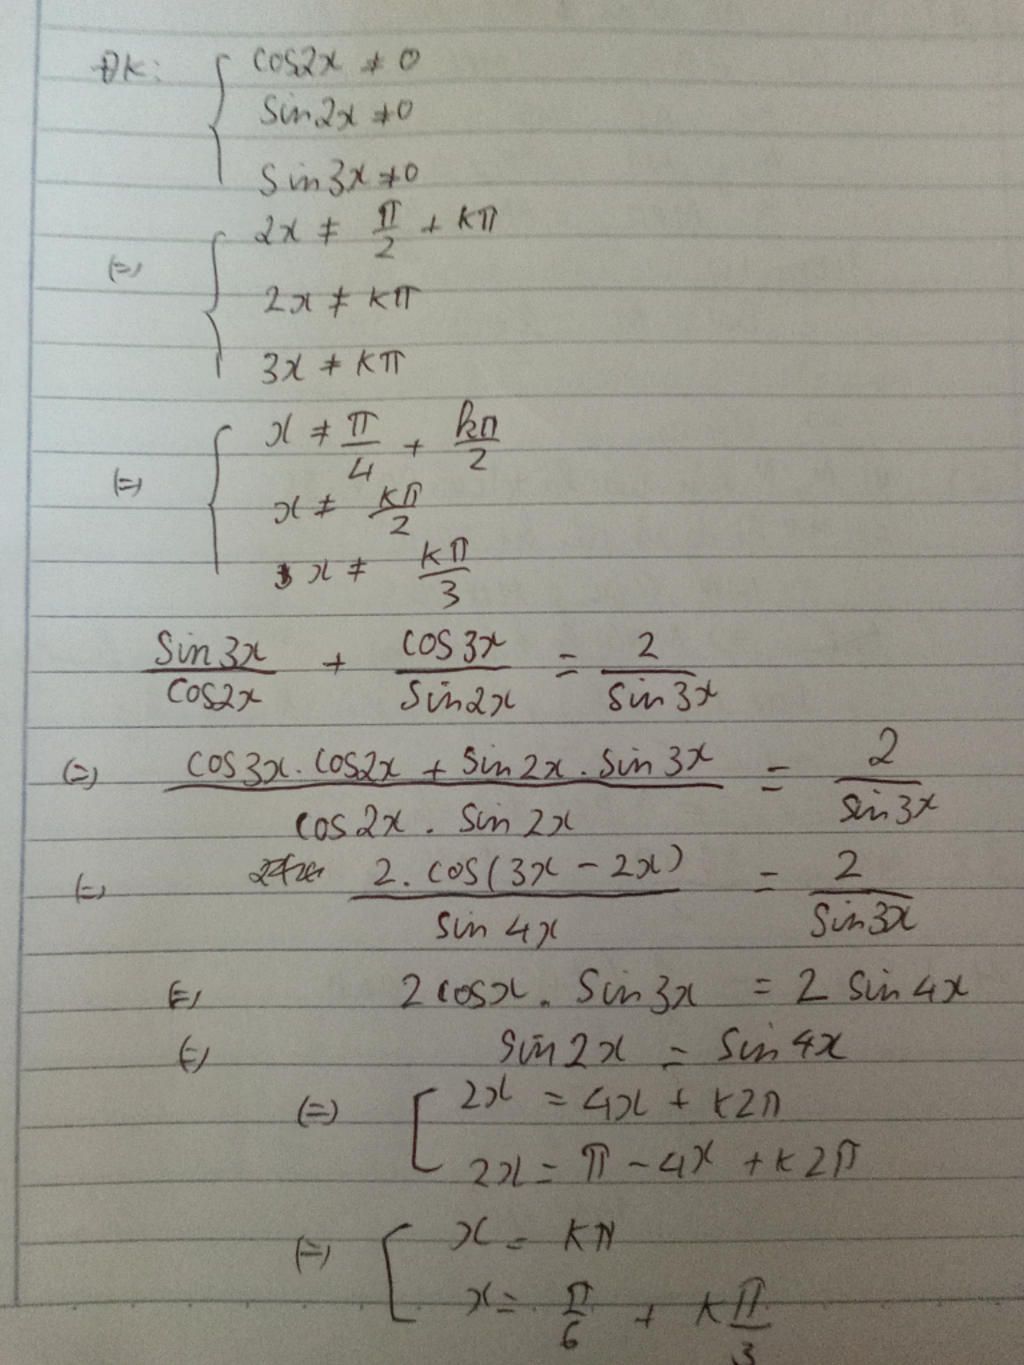 ĐK: { cos2x ≠ 0
sin2x ≠ 0
sin3x ≠ 0
(=) { 2x ≠ π/2 + kπ
2x ≠ kπ
3x ≠ kπ
(=) { x ≠ π/4 + kπ/2
x ≠ kπ/2
x ≠ kπ/3
sin3x/cos2x + cos3x/sin2x = 2/sin3x
(=) (cos3x. cos2x + sin2x. sin3x)/(cos2x. sin2x) = 2/sin3x
(=) 2. cos(3x - 2x)/sin4x = 2/sin3x
(=) 2cosx. sin3x = 2 sin4x
(=) sin2x = sin4x
(=) [ 2x = 4x + k2π
2x = π - 4x + k2π
(=) [ x = kπ
x = π/6 + kπ/3